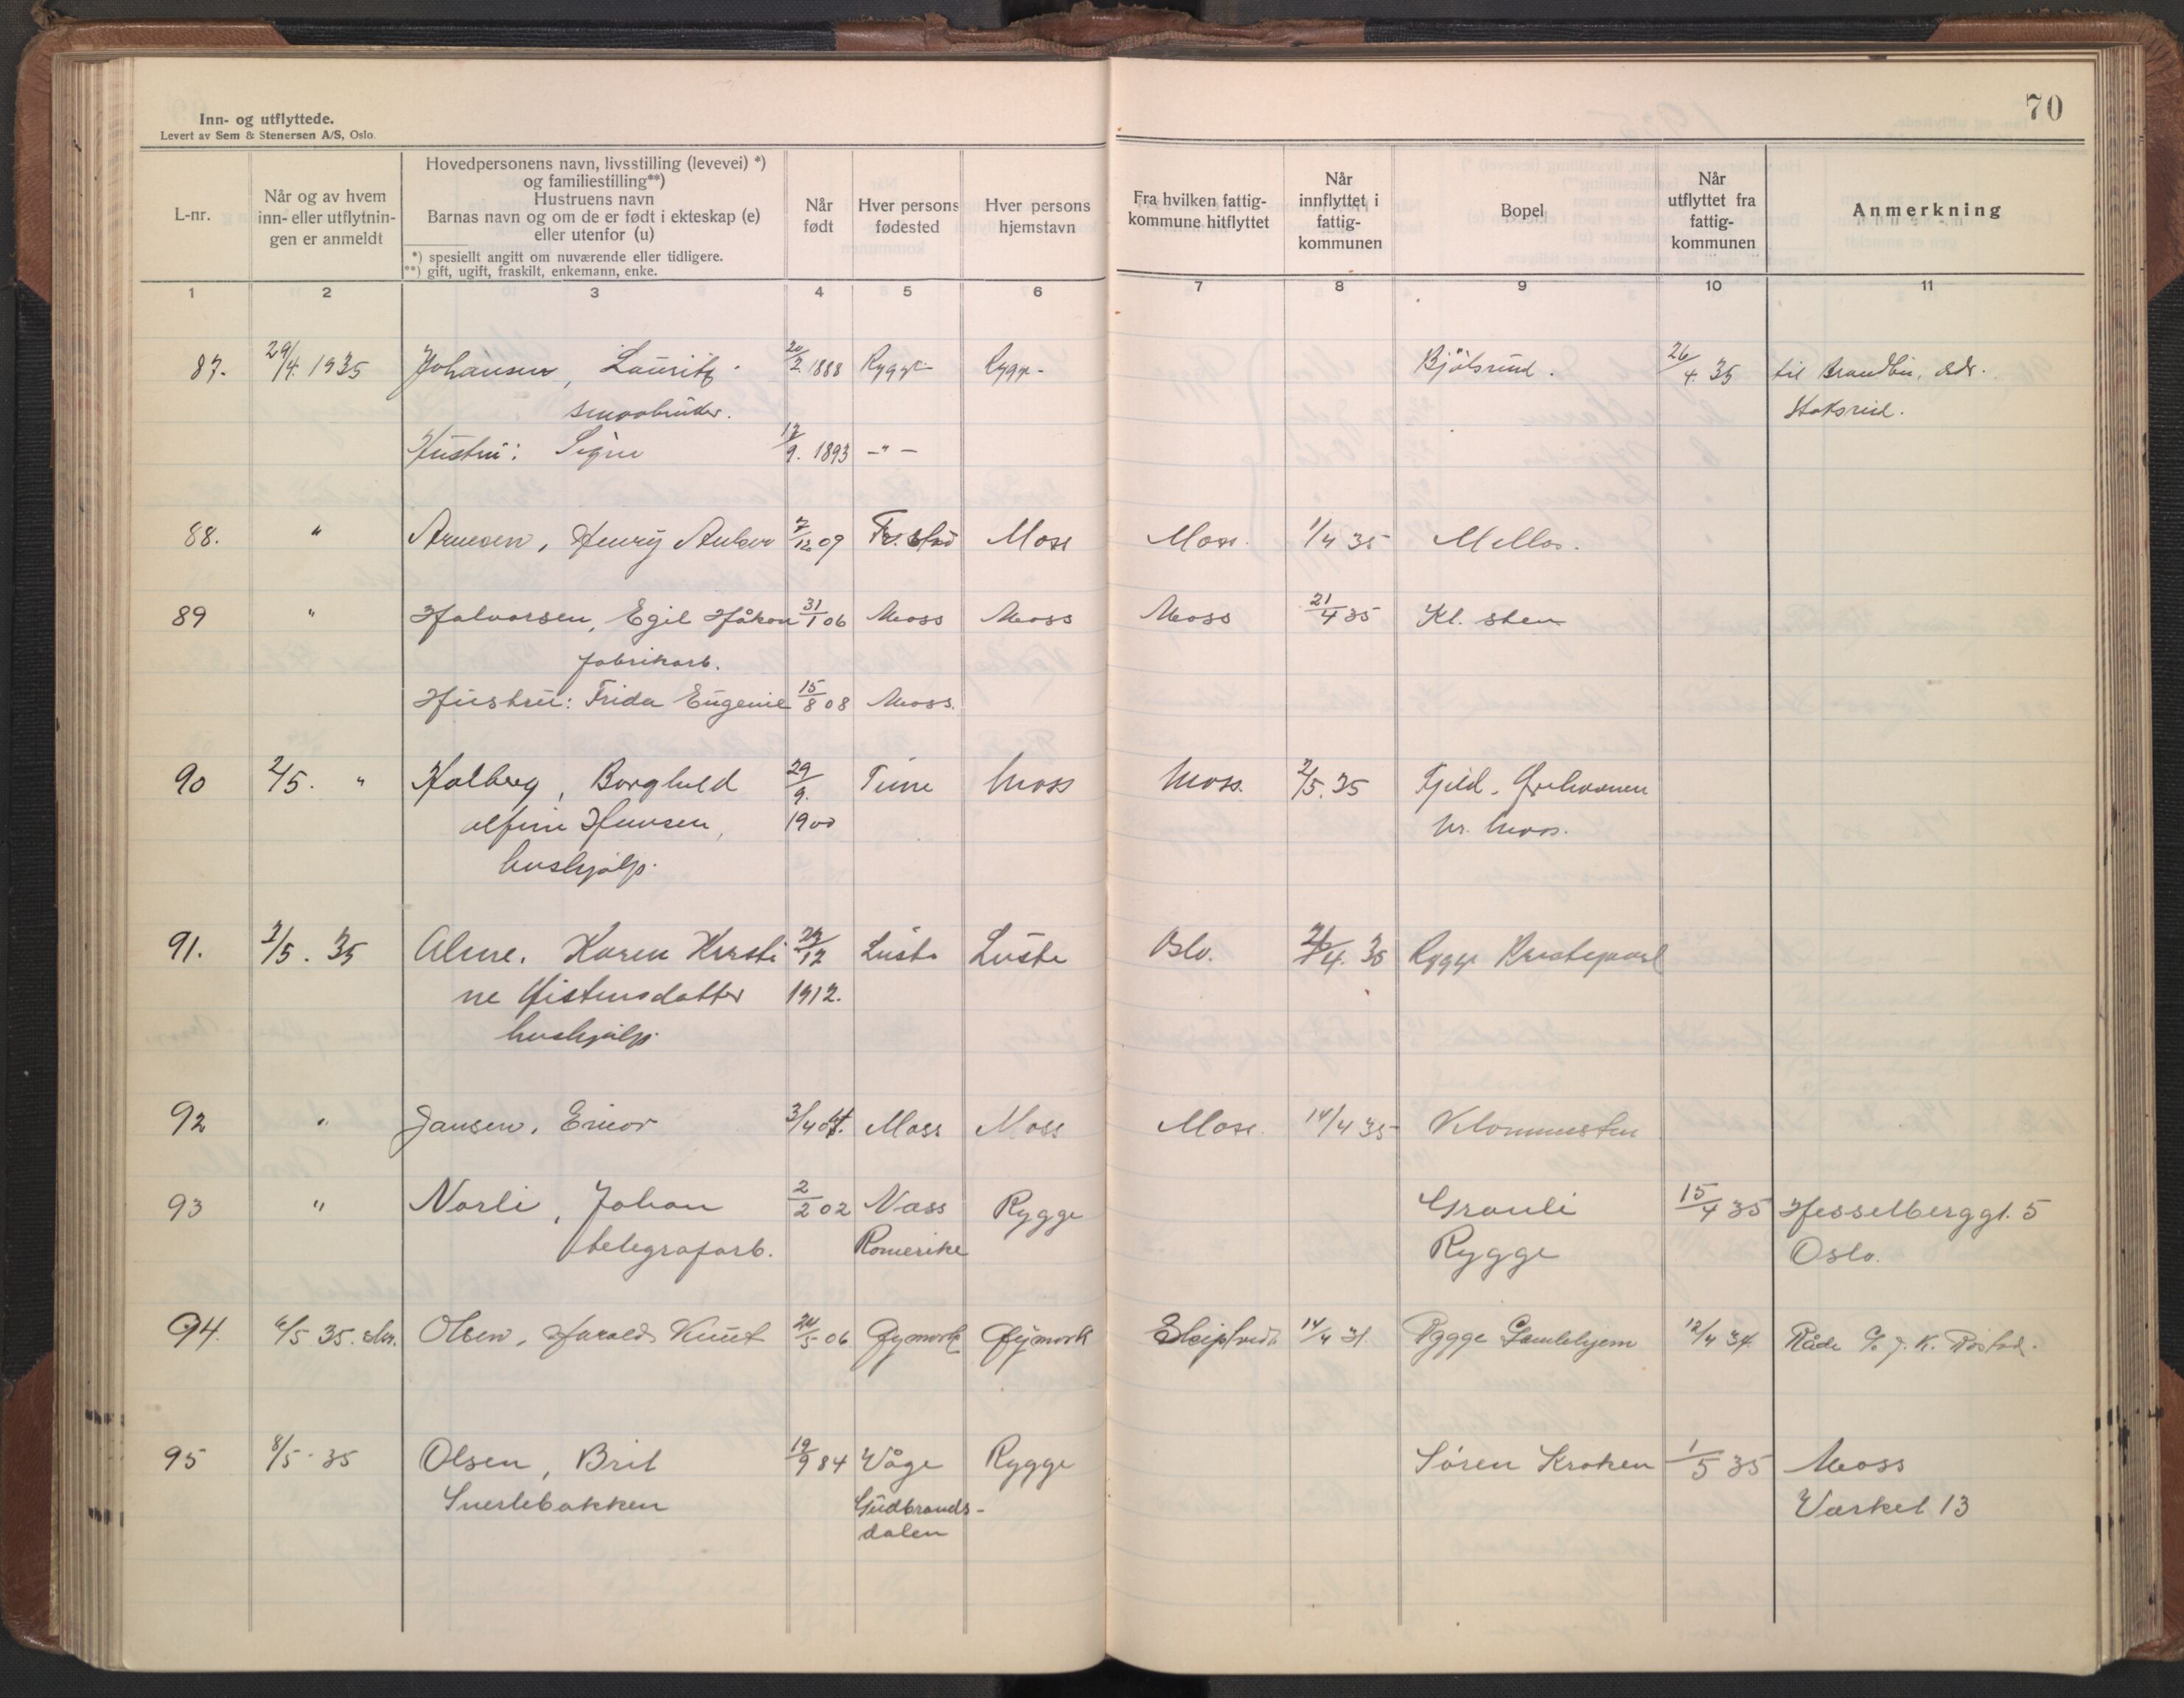 Inn- og utflyttede.
Levert av Sem & Stenersen A/S, Oslo.
70
L-nr.
Når og av hvem
inn- eller utflytnin-
gen er anmeldt
Hovedpersonens navn, livsstilling (levevei) *)
og familiestilling**)
Hustruens navn
Barnas navn og om de er født i ekteskap (e)
eller utenfor (u)
*) spesiellt angitt om nuværende eller tidligere.
**) gift, ugift, fraskilt, enkemann, enke.
Når
født
Hver persons
fødested
Hver persons
hjemstavn
Fra hvilken fattig-
kommune hitflyttet
Når
innflyttet i
fattig-
kommunen
Bopel
Når
utflyttet fra
fattig-
kommunen
Anmerkning
1 2 3 4 5 6 7 8 9 10 11
87. 29/4. 1935 Johansen, Lauritz 20/2. 1888 Rygge Rygge Bjölsrud. 26/4. 35 til
smaabruker.
Hustru: Signe 17/9. 1893 -"-
88. " Arnesen, Henry 7/12 09 Fr.stad Moss Moss. 1/4 35 Mellos.
89 " Halvorsen, Egil Håkon 31/1 06 Moss Moss Moss 21/4 35 Kl. sten
fabrikarb.
Hustru: Frida Eugenie 15/8 08 Moss.
90 2/5. " Halberg, Borghild 29/9. Tune Moss Moss. 2/5. 35
Hansen, 1900 nr. Moss.
hushjälp.
91. 3/5. 35 Alme, Karen Kirsti 27/12 Luster Luster Oslo. 4. 35 Rygge Prestegaard
ne Øistensdatter 1912.
hushjälp.
92 " Jansen, Einar 3/4 Moss Moss Moss 14/4 35 Klommesten
93 " Norli, Johan 2/2 02 Næss Rygge Granli 15/4 35 Hesselberggt. 5
telegrafarb. Romerike Rygge Oslo.
94. 6/5 35. Olsen, Harald Knut 24/5 06 Øymark Øymark Skiptvedt 14/4 31. Rygge Gamlehjem 12/4 34 Råde c/o J. K.
95 8/5. 35 Olsen, Brit 19/9 84 Våge Rygge Sören Kroken 1/5 35 Moss
Snerlebakken Gudbrands- Værket 13
dalen